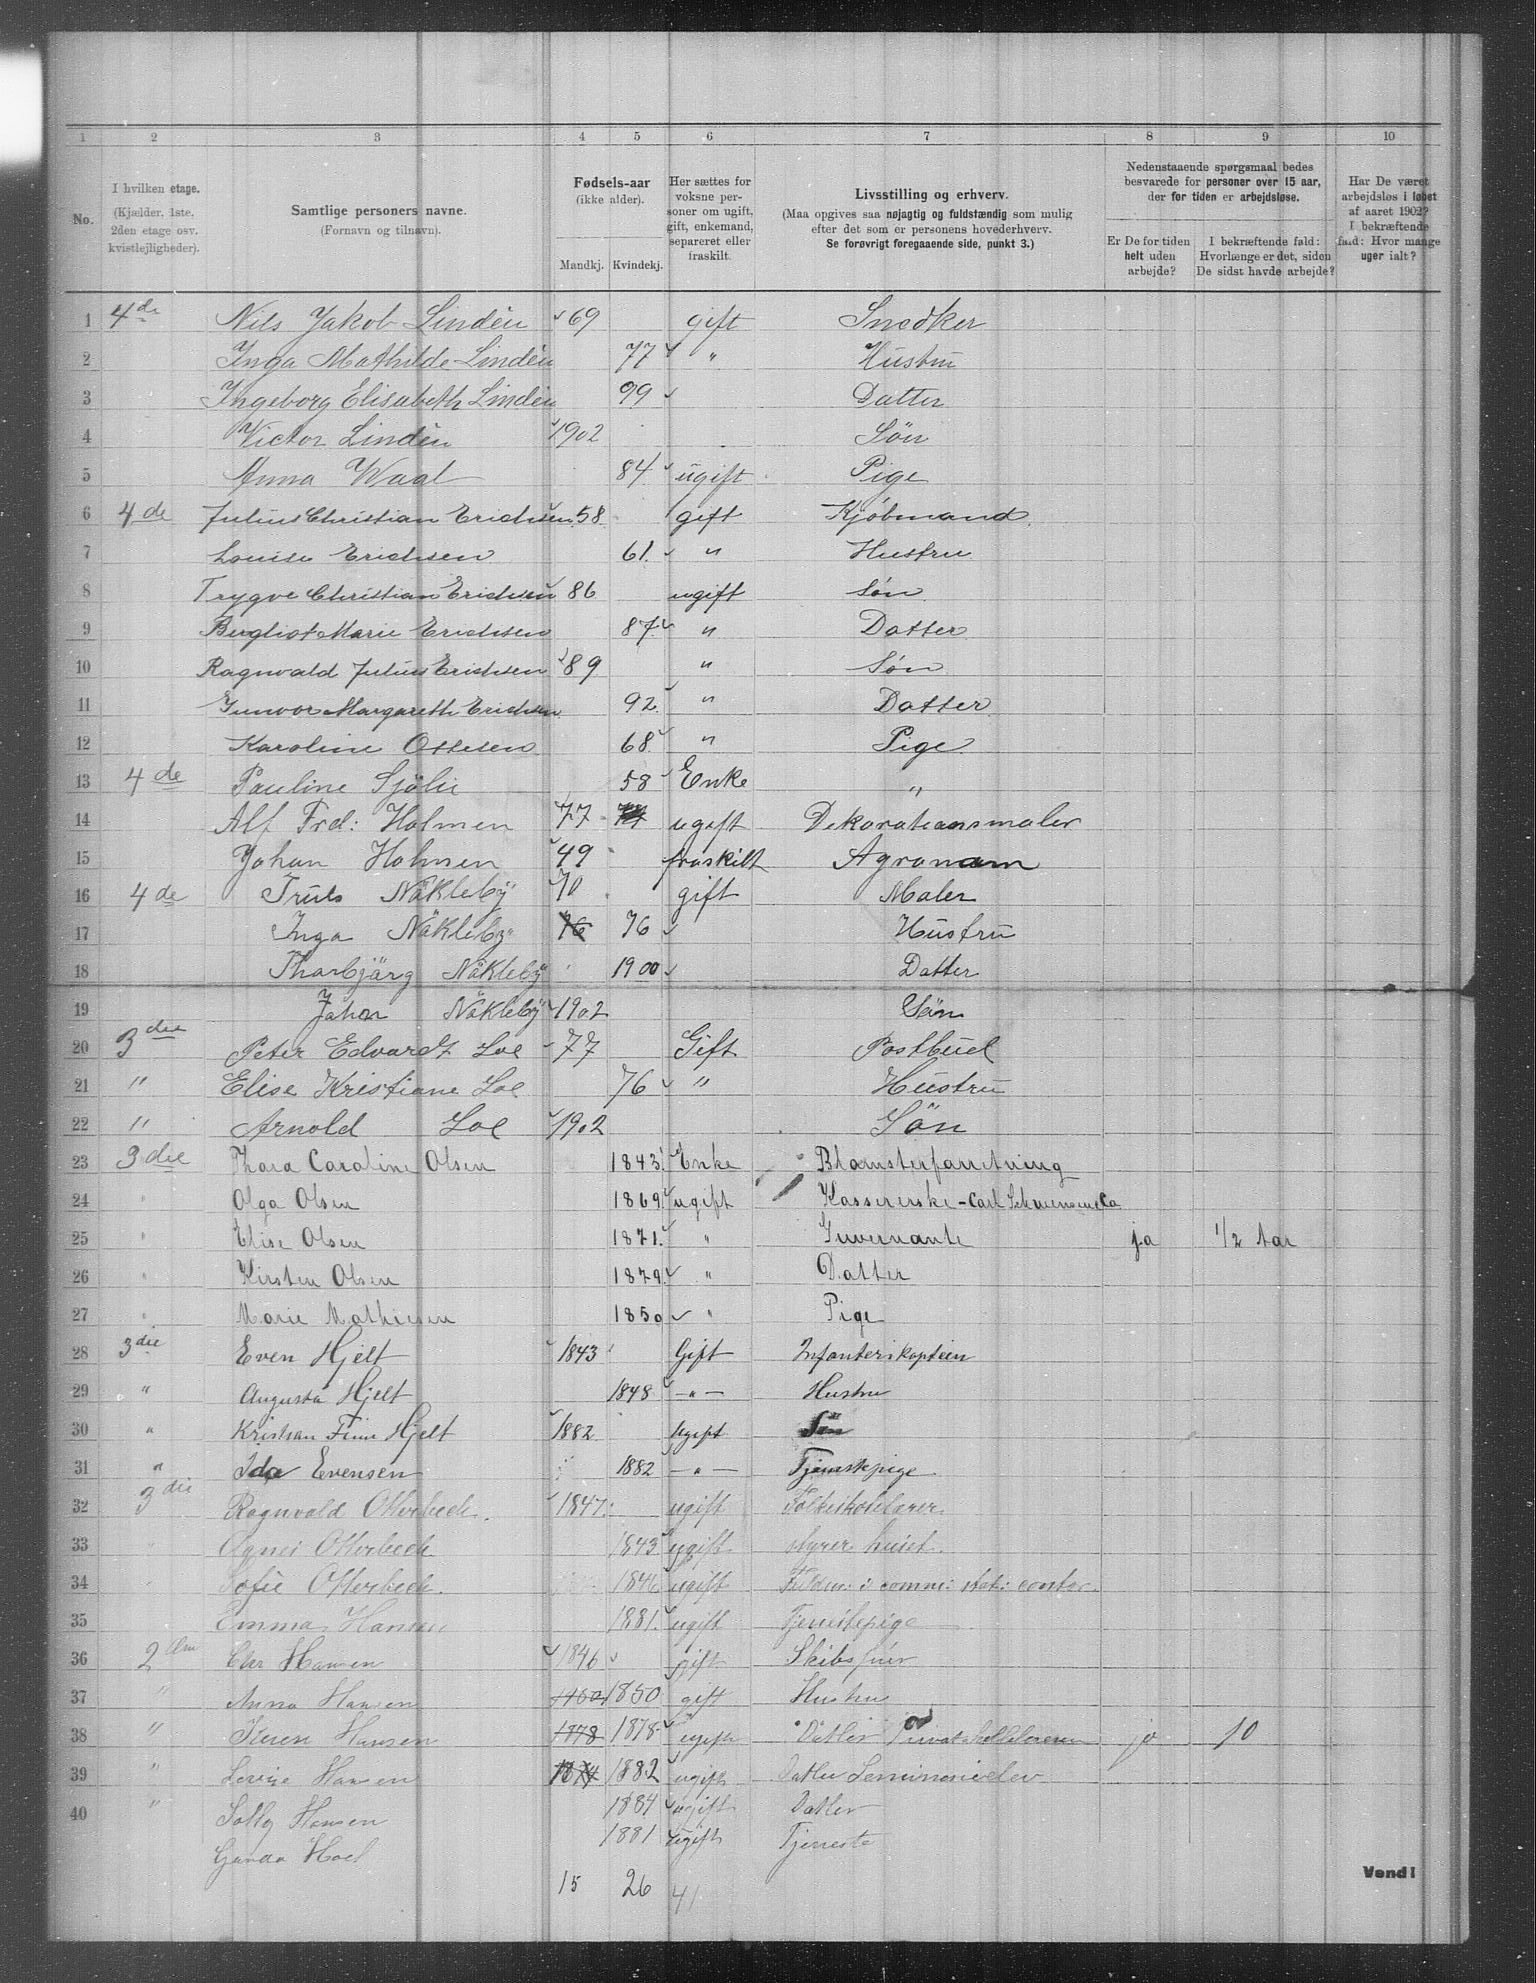 1 2 3 4 5 6 7 8 9 10
No.
I hvilken etage. (Kjælder, 1ste, 2den etage osv. kvistlejligheder).
Samtlige personers navne. (Fornavn og tilnavn).
Fødsels-aar (ikke alder). Mandkj. Kvindekj.
Her sættes for voksne personer om ugift, gift, enkemand, separeret eller fraskilt.
Livsstilling og erhverv. (Maa opgives saa nøjagtig og fuldstændig som mulig efter det som er personens hovederhverv. Se forøvrigt foregaaende side, punkt 3.)
Nedenstaaende spørgsmaal bedes besvarede for personer over 15 aar, der for tiden er arbejdsløse.
Er De for tiden helt uden arbejde?
I bekræftende fald: Hvorlænge er det, siden De sidst havde arbejde?
Har De været arbejdsløs i løbet af aaret 1902? I bekræftende fald: Hvor mange uger ialt?
1 4de Nils Jakob Lindén 69 gift Snedker
2 Inga Mathilde Lindén 77 " Hustru
3 Ingeborg Elisabeth Lindén 99 Datter
4 Victor Lindén 1902 Søn
5 Anna Waal 84 ugift Pige
6 4de Julius Christian Erichsen 58 gift Kjøbmand
7 Louise Erichsen 61 " Hustru
8 Trygve Christian Erichsen 86 ugift Søn
9 Bergliot Marie Erichsen 87 " Datter
10 Ragnvald Julius Erichsen 89 " Søn
11 Gunvor Margareth Erichsen 92 " Datter
12 Karoline Ottesen 68 " Pige
13 4de Pauline Sjölie 58 Enke "
14 Alf Frd: Holmen 77 ugift Dekorationsmaler
15 Johan Holmsen 49 fraskilt Agronom
16 4de Truls Näkleby 70 gift Maler
17 Inga Näkleby 76 76 Hustru
18 Thorbjärg Näkleby 1900 Datter
19 Johan Näkleby 1902 Søn
20 3die Peter Edvardt Loe 77 Gift Postbud
21 " Elise Kristiane Loe 76 " Hustru
22 " Arnold Loe 1902 Sön
23 3die Thora Caroline Olsen 1843 Enke Blomsterforretning
24 " Olga Olsen 1869 ugift Kassererske - Carl
25 " Elise Olsen 1871 " Guvernante ja 1/2 Aar
26 " Kirsten Olsen 1879 " Datter
27 " Marie Mathiesen 1850 " Pige
28 3die Even Hjelt 1843 Gift Infanterikaptein
29 " Augusta Hjelt 1848 —"— Hustru
30 " Kristian Finn Hjelt 1882 Ugift Søn
31 " Ida Evensen 1882 —"— Tjenestepige
32 3die Ragnvald Otterbech. 1847 ugift Folkeskolelærer
33 " Agnes Otterbech 1843 ugift styrer huset.
34 Sofie Otterbech. 1846 ugift i comm: stat: contor.
35 Emma Hansen 1881. ugift Tjenestepige
36 2den Chr Hansen 1846 gift Skibsfører
37 " Anna Hansen 1850 1850 gift Hustru
38 " Hansen 1878 1878 ugift Datter ja 10
39 " Hansen 1882 ugift Datter
40 " Solly Hansen 1884 ugift Datter
Hoel 1881 ugift Tjeneste
15 26 41
Vend!